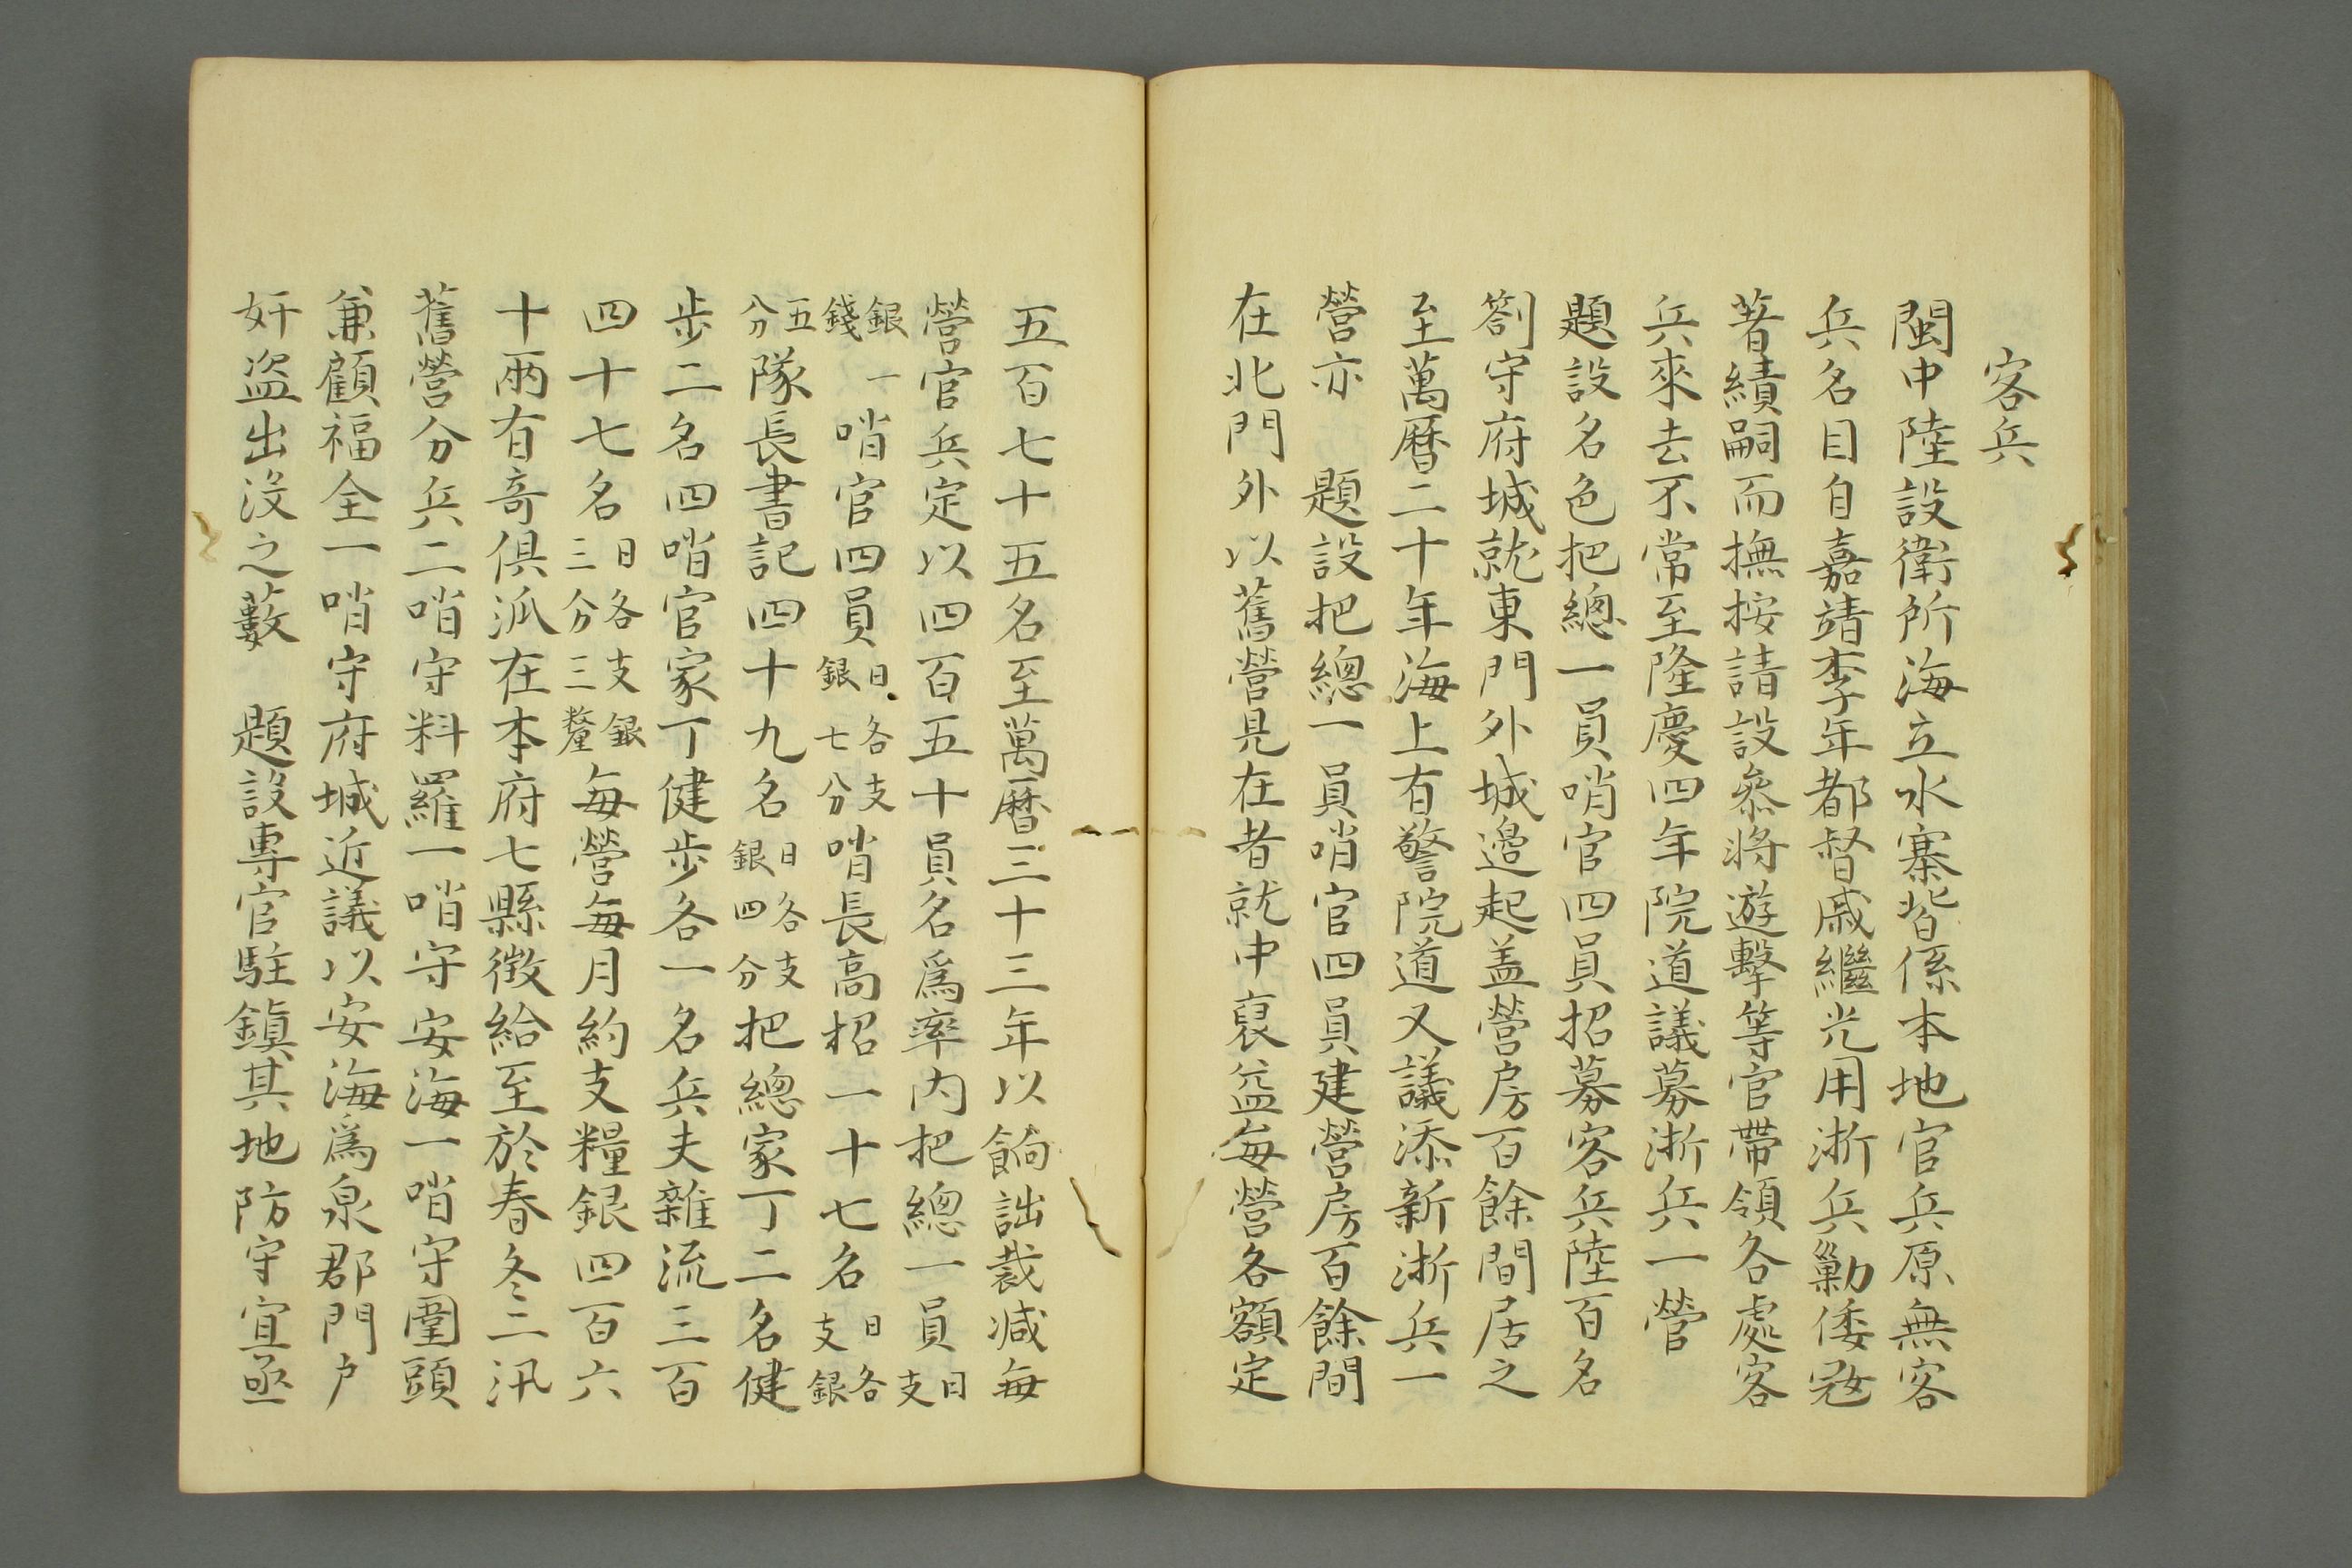 客兵
閩中陸設衛所海立水寨皆係本地官兵原無客
兵名目自嘉靖季年都督戚繼光用浙兵勦倭寇
著績嗣而撫按請設叅將遊擊等官帶領各處客
兵來去不常至隆慶四年院道議募浙兵一營
題設名色把總一員哨官四員招募客兵陸百名
劄守府城就東門外城邉起盖營房百餘間居之
至萬曆二十年海上有警院道又議添新浙兵一
營亦　題設把總一員哨官四員建營房百餘間
在北門外以舊營見在者就中裒益每營各額定
五百七十五名至萬曆三十三年以餉詘裁减每
營官兵定以四百五十員名爲率内把總一員日支
銀一錢哨官四員日各支銀七分哨長高招一十七名日各支銀
五分隊長書記四十九名日各支銀四分把總家丁二名健
步二名四哨官家丁健步各一名兵夫雜流三百
四十七名日各支銀三分三釐每營每月約支糧銀四百六
十兩有奇俱派在本府七縣徴給至於春冬二汛
舊營分兵二哨守料羅一哨守安海一哨守圍頭
兼顧福全一哨守府城近議以安海爲泉郡門户
奸盗出沒之藪　題設專官駐鎮其地防守宜亟